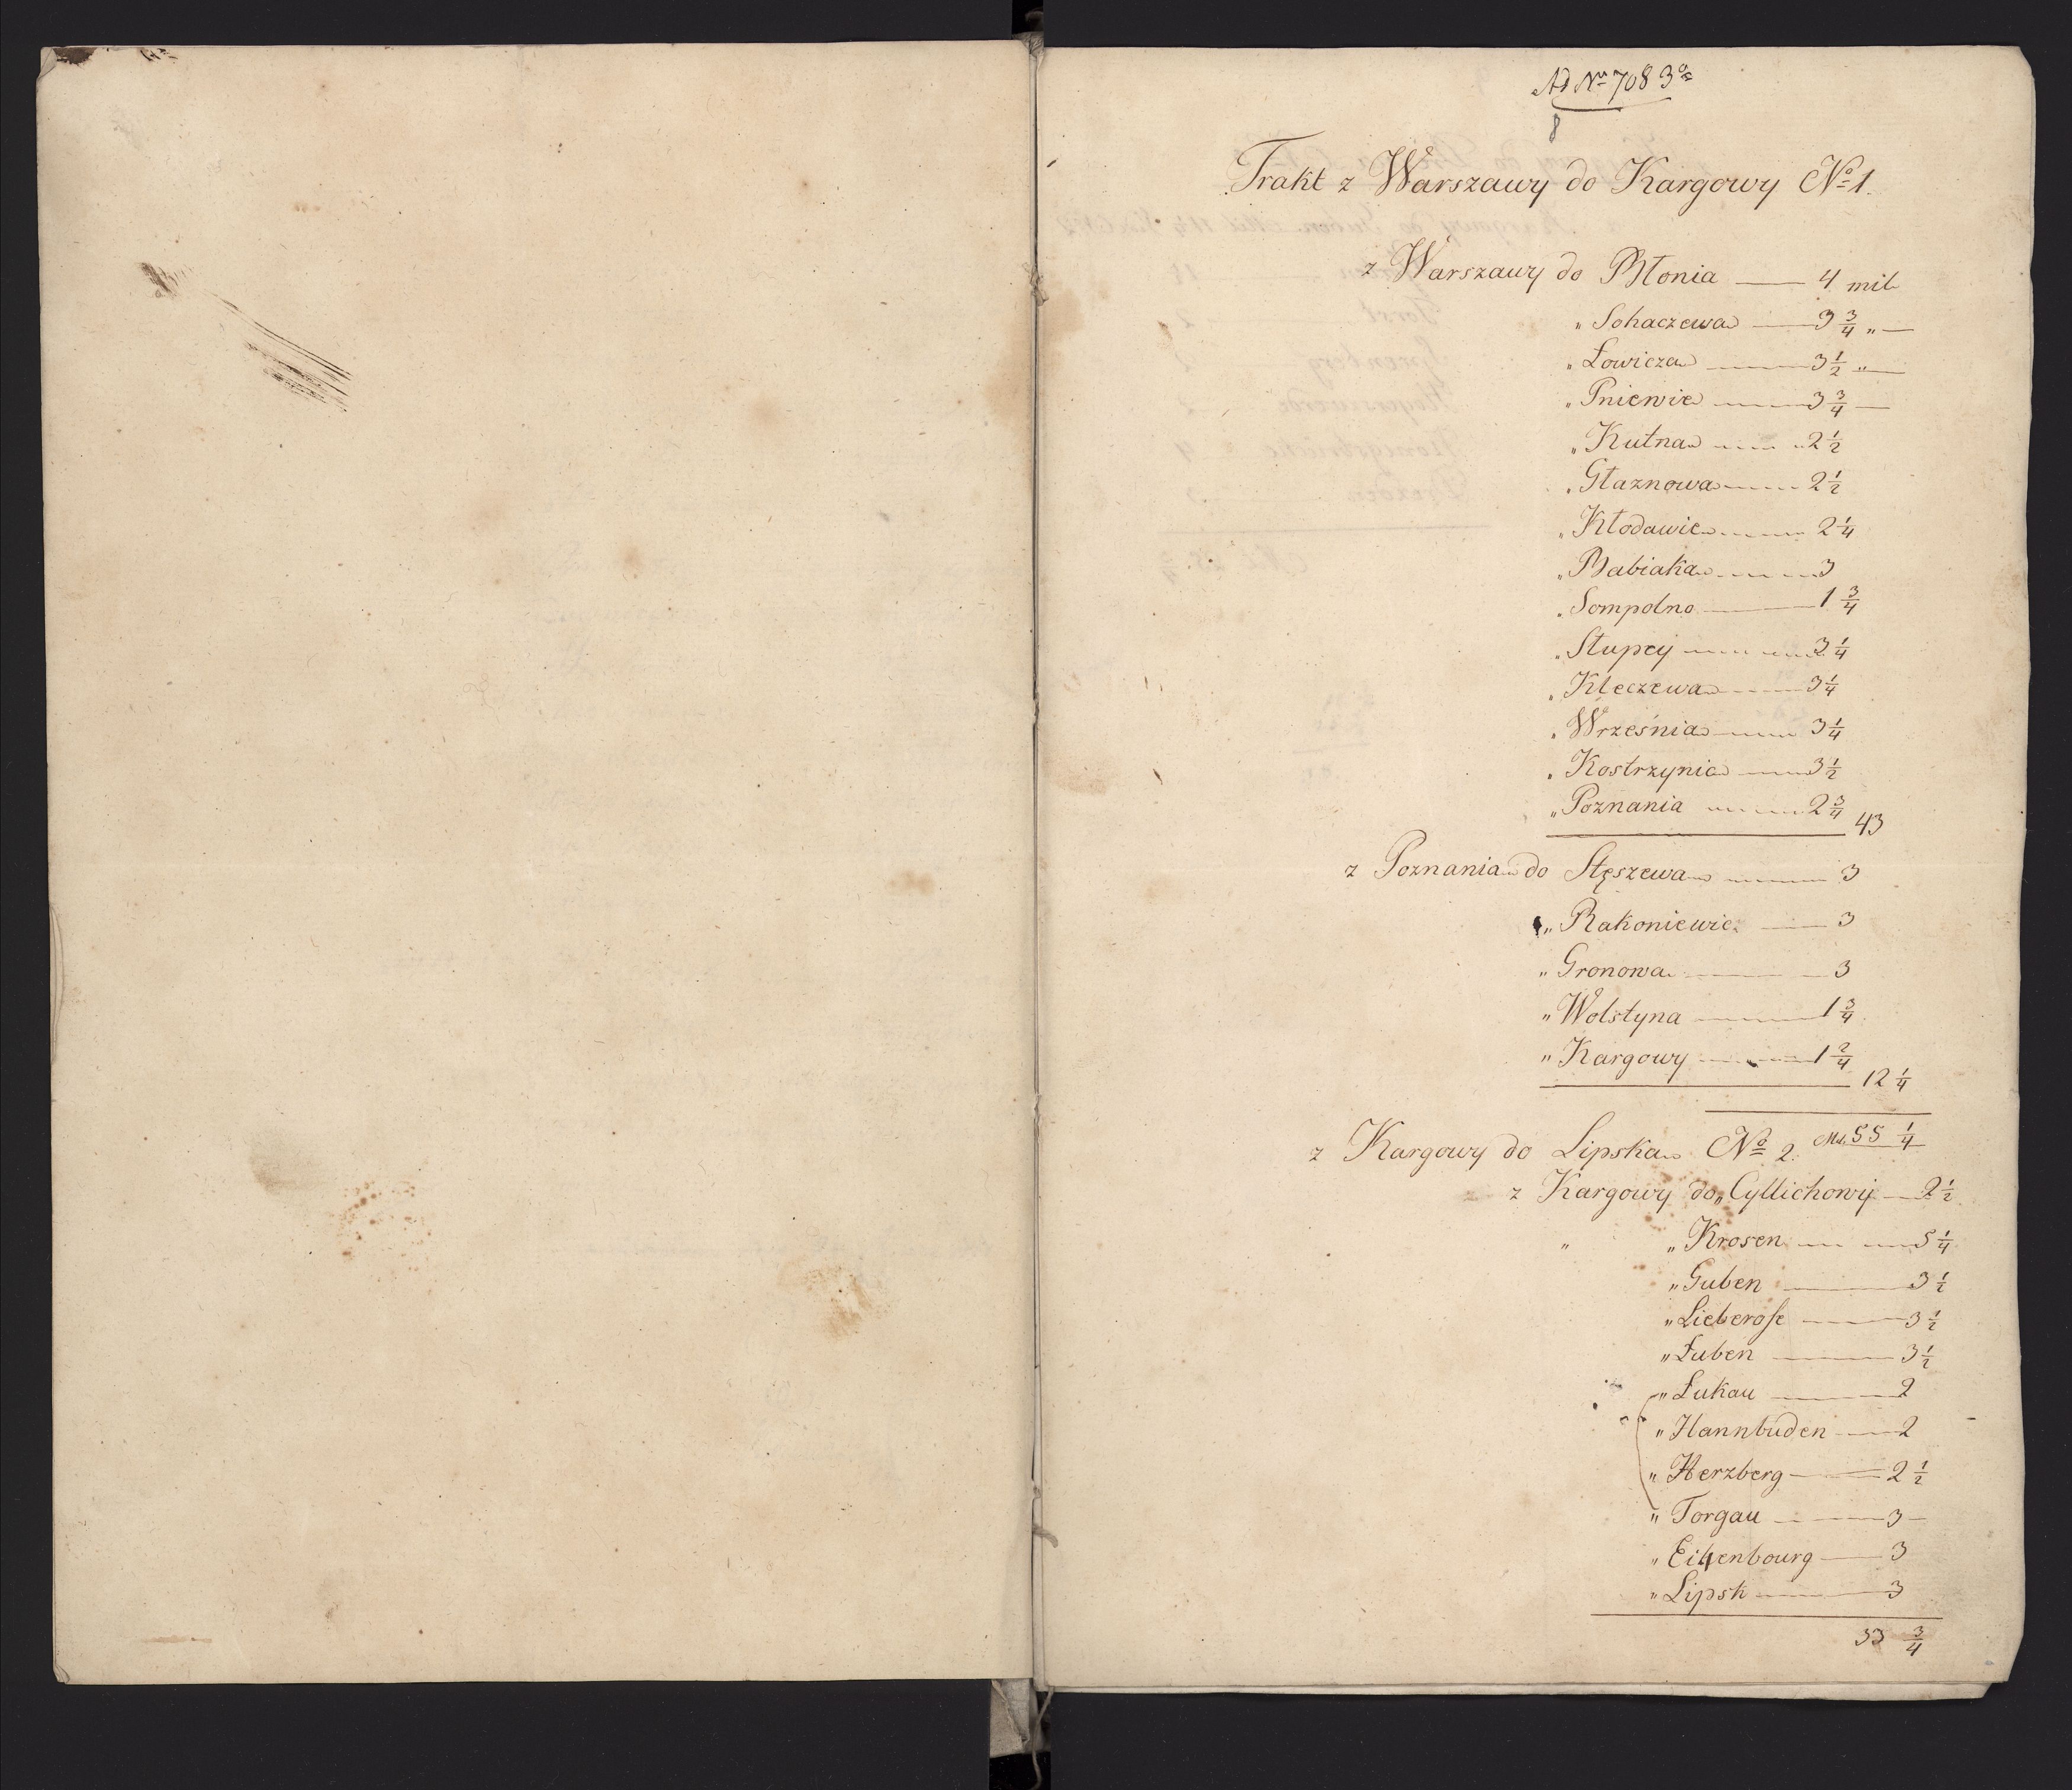 Ad Nr 7083
8
Trakt z Warszawy do Kargowy No 1.
z Warszawy do Błonia — 4 mil
" Sohaczewa — 3 3/4 " —
" Łowicza — 3 1/2 " —
" Pniewie — 3 3/4 —
" Kutna — 2 1/2
" Głaznowa — 2 1/2
" Kłodawie — 2 1/4
" Babiaka — 3
" Sompolno — 1 3/4
" Słupcy — 3 1/4
" Kleczewa — 3 1/4
" Września — 3 1/4
" Kostrzynia — 3 1/2
" Poznania — 2 3/4
43
z Poznania do Stęszewa — 3
" Rakoniewic — 3
" Gronowa — 3
" Wolstyna — 1 3/4
" Kargowy — 1 2/4
12 1/4
Mil. 55 1/4
z Kargowy do Lipska No 2.
z Kargowy do " Cyllichowy — 2 1/2
" " Krosen — 5 1/4
" Guben — 3 1/2
" Lieberose — 3 1/2
" Łuben — 3 1/2
" Łukau — 2
" Hannbuden — 2
" Herzberg — 2 1/2
" Torgau — 3 —
" Eilenbourg — 3
" Lipsk — 3
33 3/4